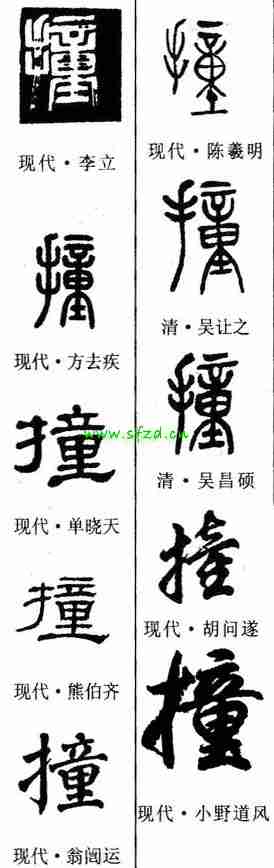 撞
现代·李立
撞
现代·方去疾
撞
现代·单晓天
撞
现代·熊伯齐
撞
现代·翁闿运
撞
现代·陈羲明
撞
清·吴让之
撞
清·吴昌硕
撞
现代·胡问遂
撞
现代·小野道风
www.sfzd.cn